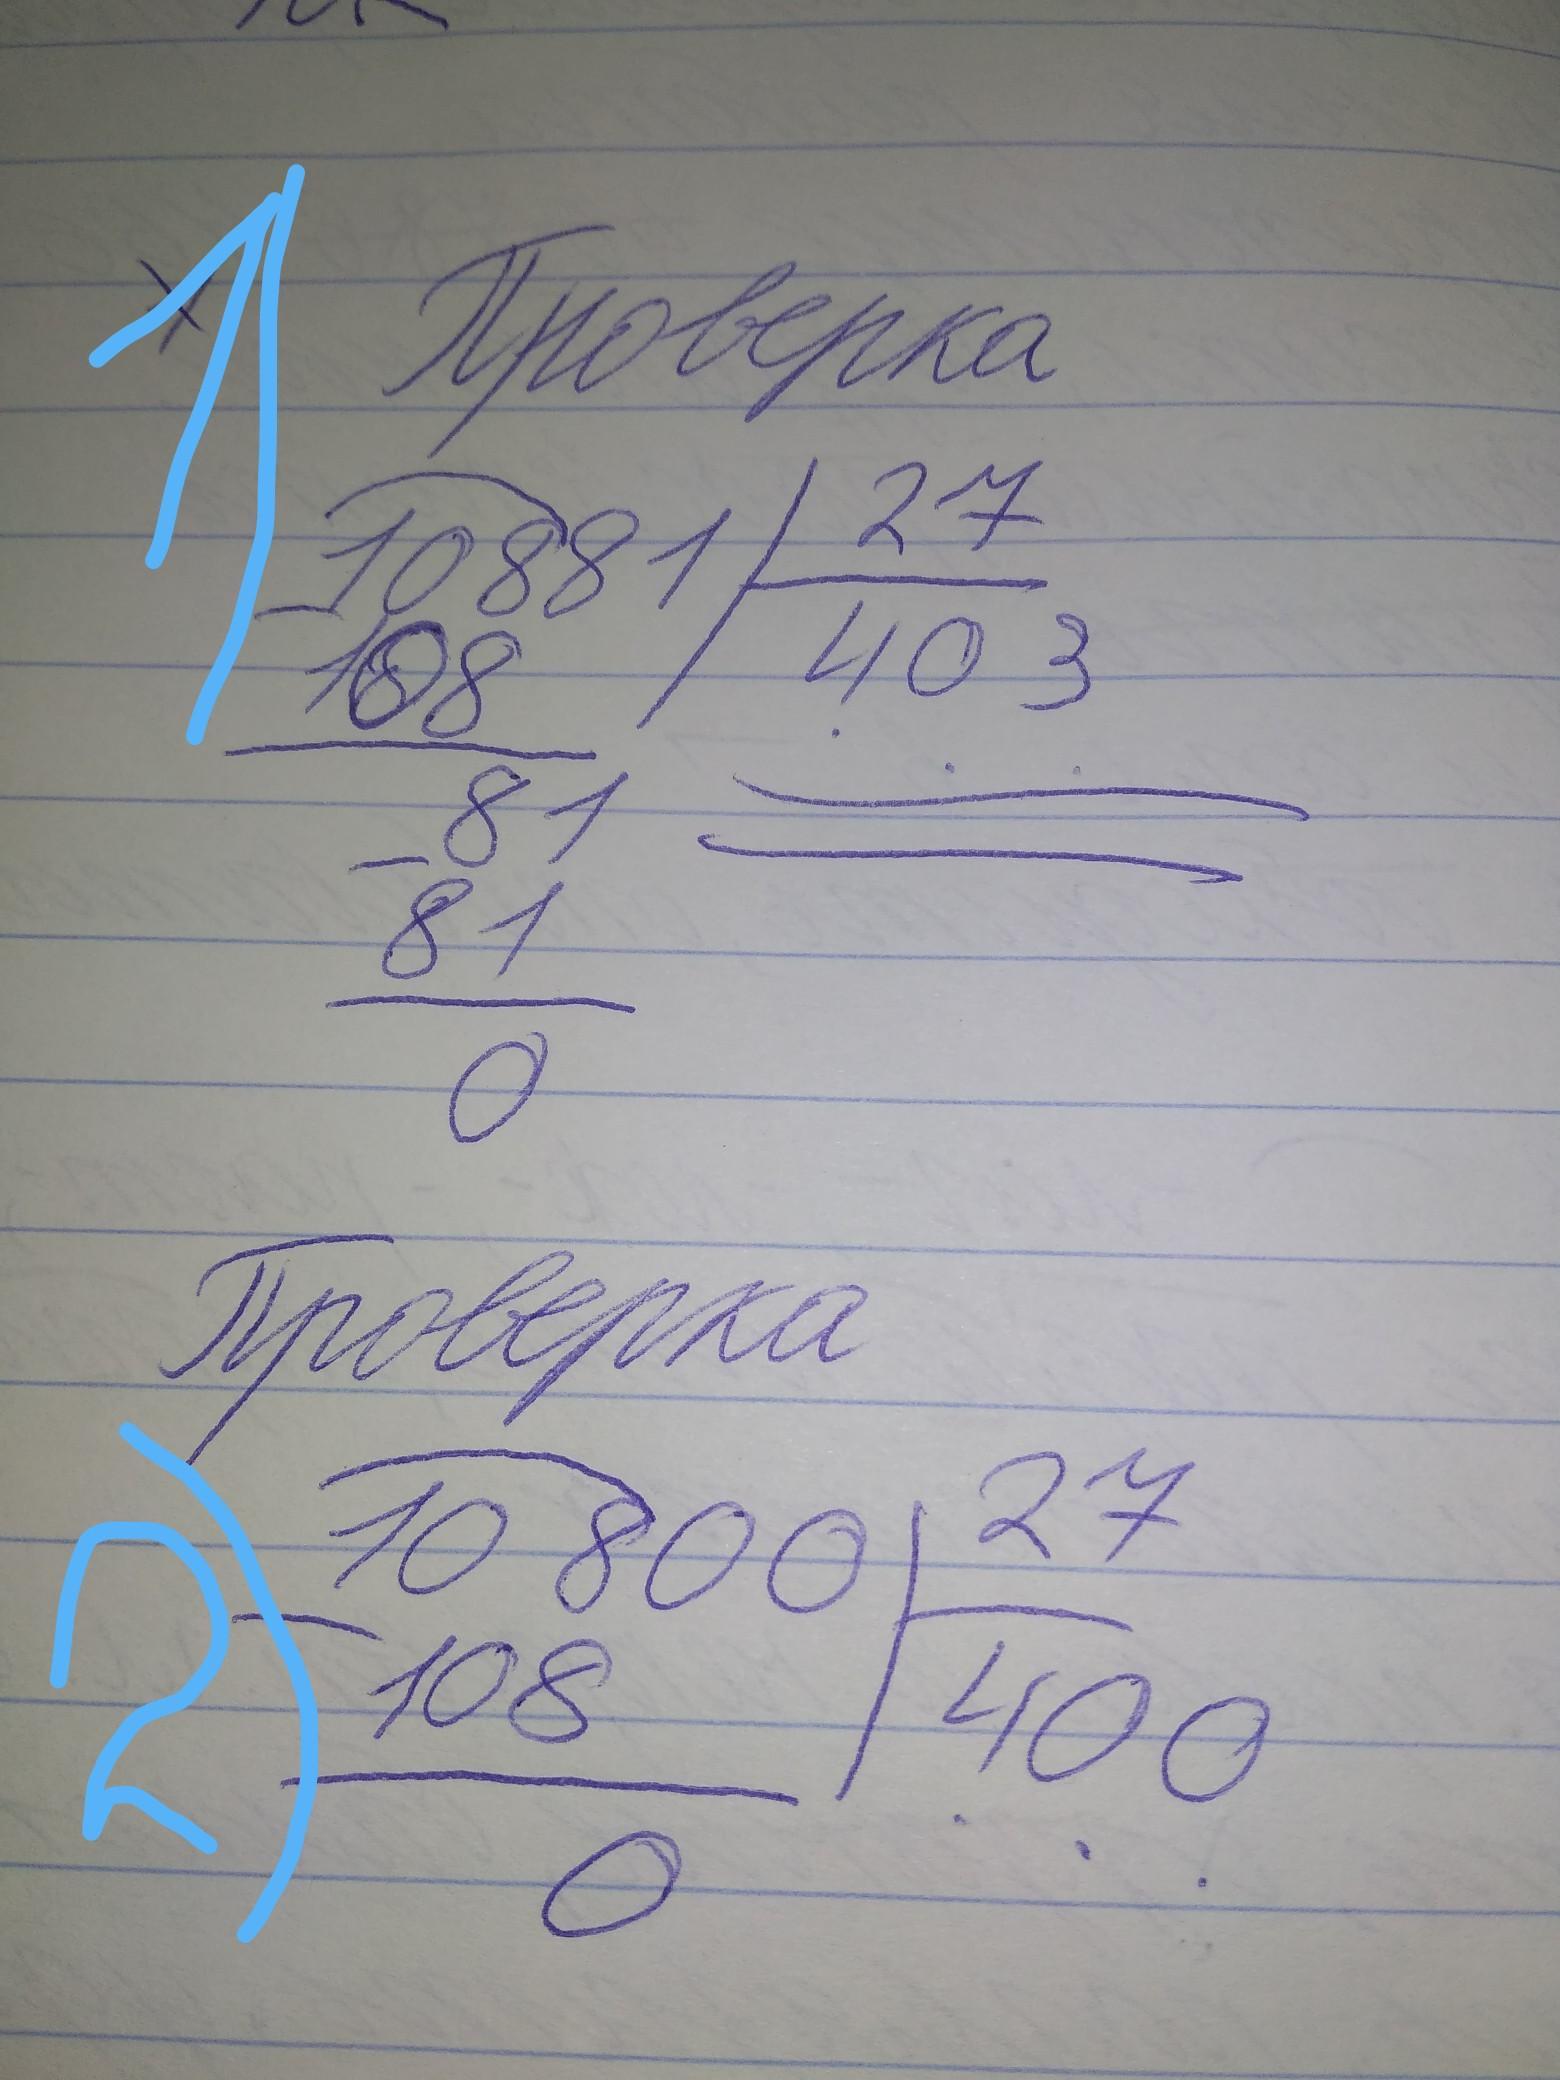 1)
Проверка
10881 27
108 403
81
81
0
Проверка
2)
10800 27
108 400
0